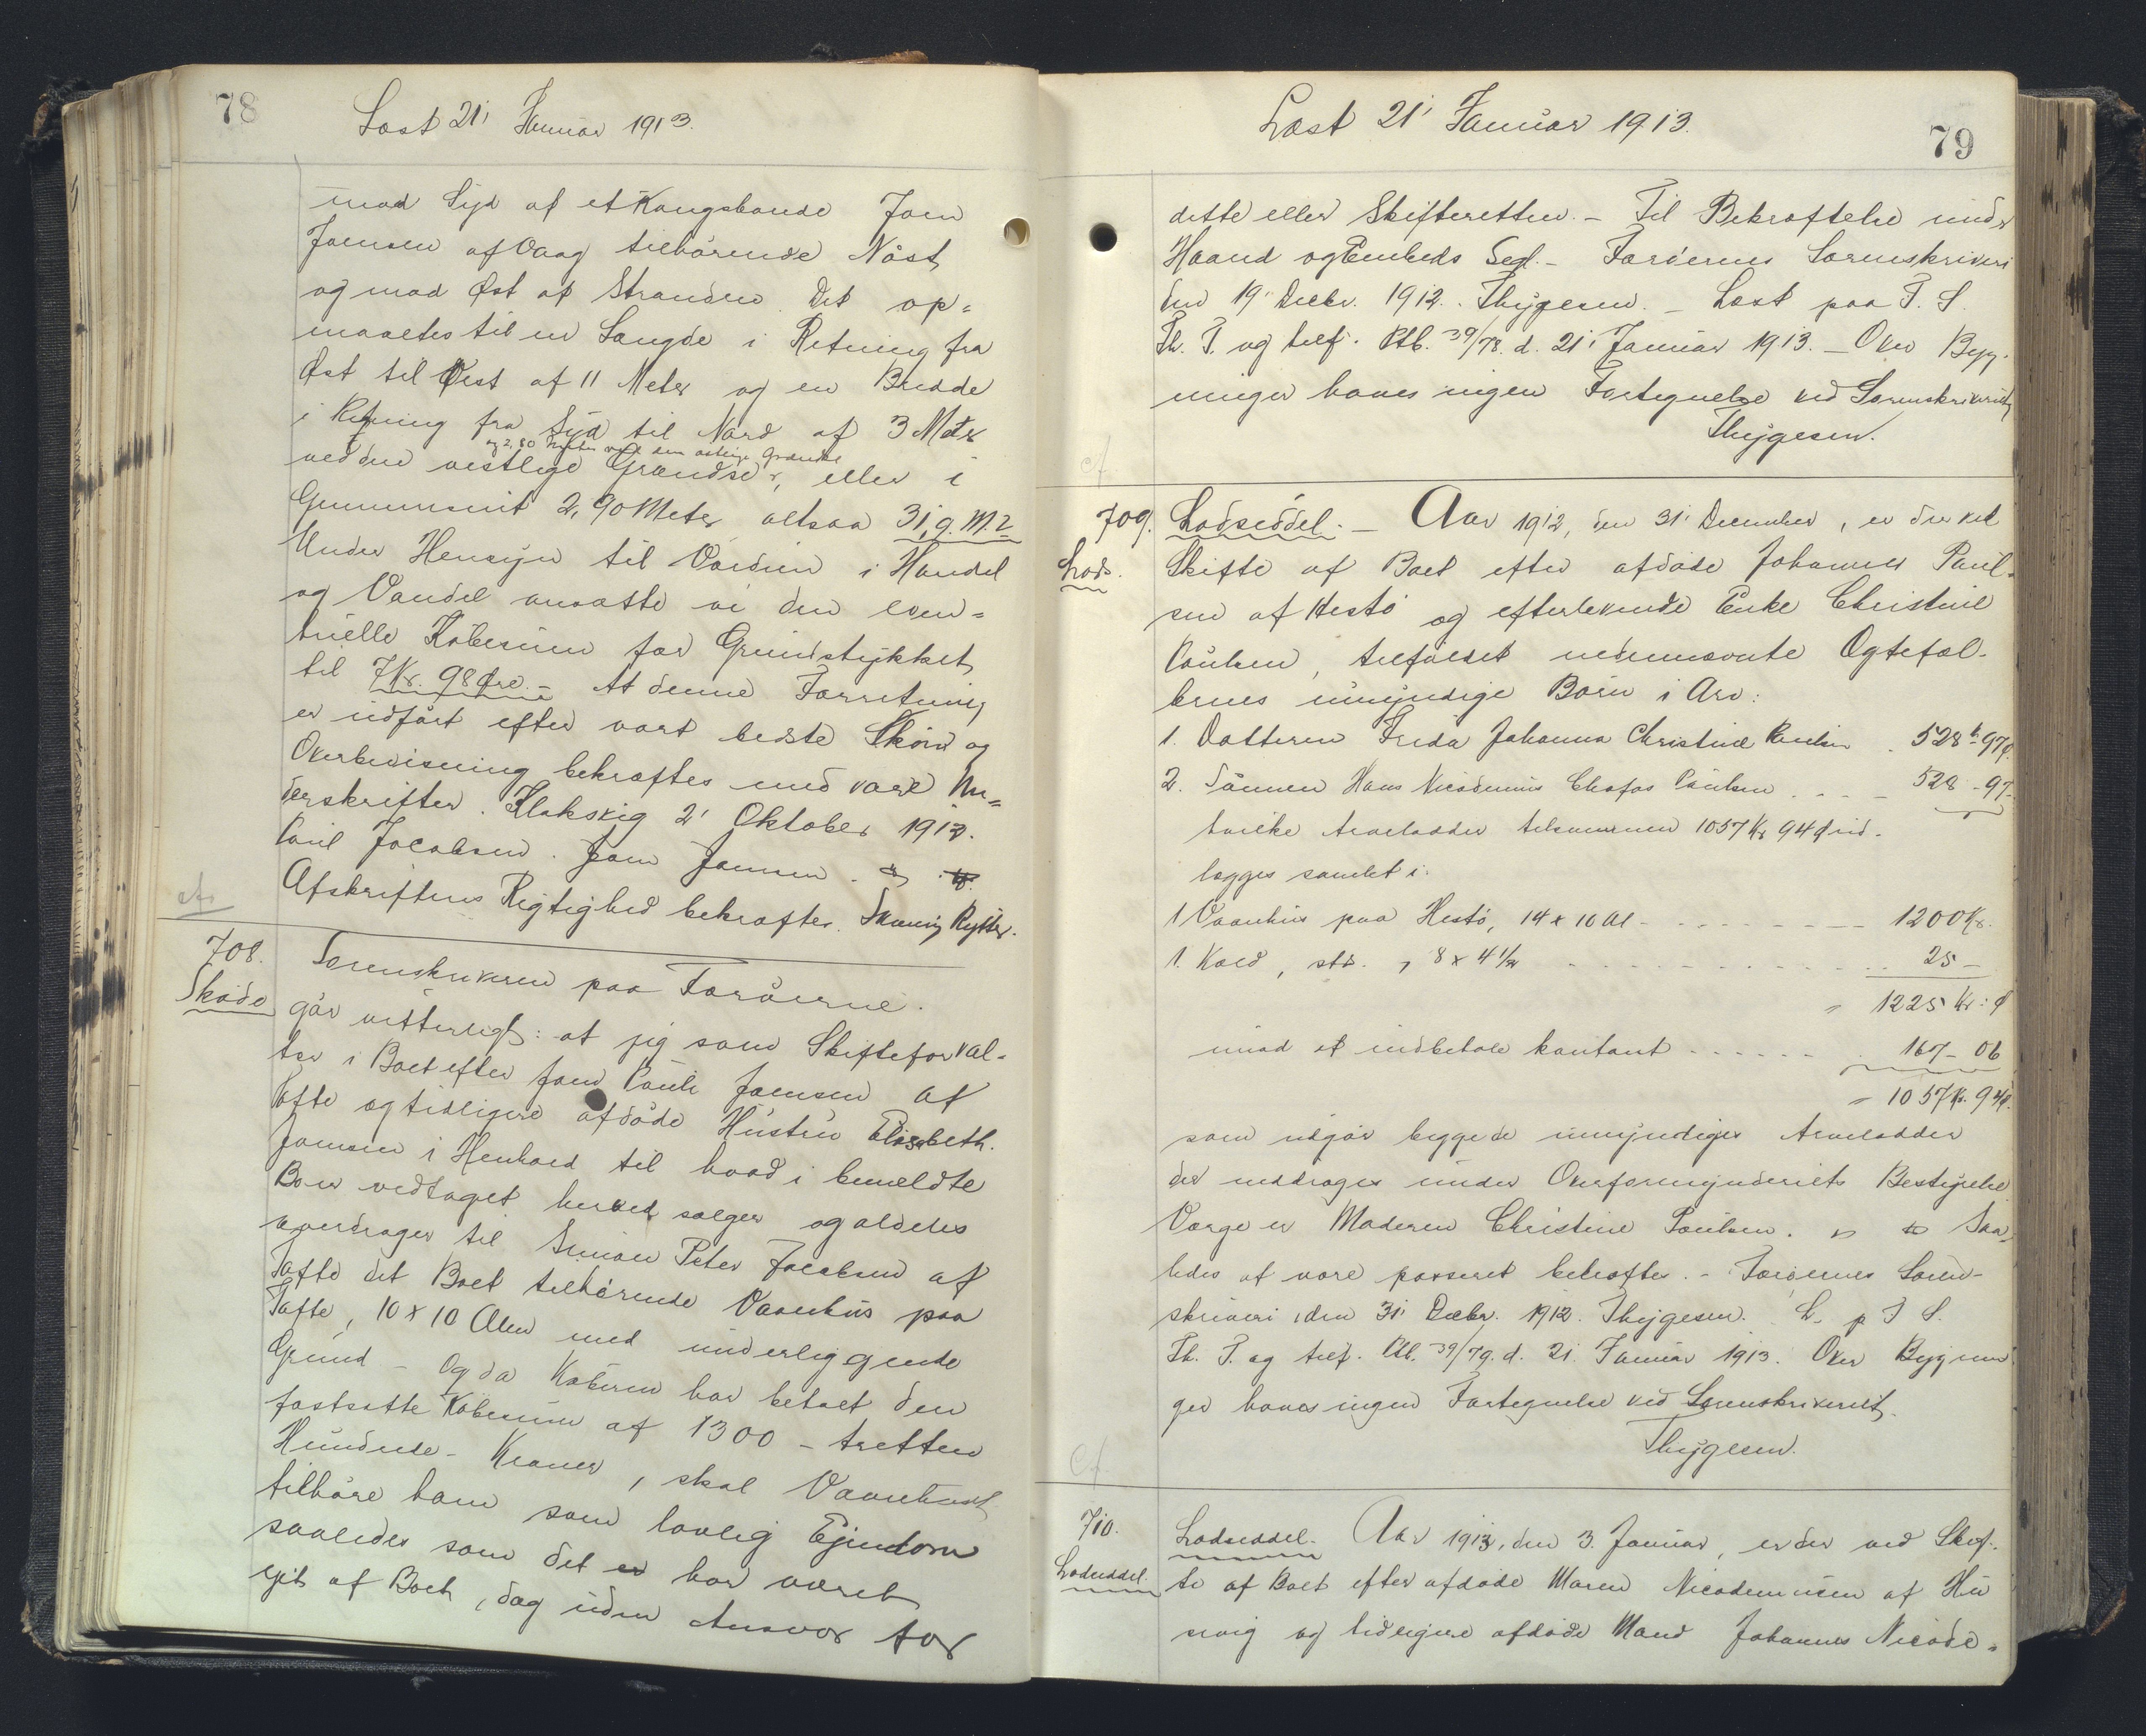 78
Læst 21' Januar 1913.
mod Syd af et Kongsbonde Joen
Joensen af Vaag tilhörende Nöst,
og mod Øst af Stranden. Det op=
maaltes til en Længde i Retning fra
Øst til Vest af 11 Meter og en Bredde
i Retning fra Syd til Nord af 3 Meter
og 2,80 Meter ved den östlige Grændse
ved den vestlige Grændse, eller i
Gennemsnit 2,90 Meter altsaa 31,9 M.2
Under Hensyn til Værdien i Handel
og Vandel ansatte vi den even=
tuelle Köbesum for Grundstykket
til 7 Kr. 98 Øre. – At denne Forretning
er udfört efter vort bedste Skön og
Overbevisning bekræftes med vore Un=
derskrifter. Klaksvig 2' Oktober 1912.
Poul Jacobsen. Joen Joensen.
Afskriftens Rigtighed bekræftes. Skaaning Rytter.
708.
Sorenskriveren paa Færöerne.
Sköde
gör vitterligt: at jeg som Skifteforval-
ter i Boet efter Joen Pauli Joensen af
Tofte og tidligere afdöde Hustru Elisabeth
Joensen i Henhold til hvad i bemeldte
Bo er vedtaget herved sælger og aldeles
overdrager til Simon Peter Jacobsen af
Tofte det Boet tilhörende Vaanhus paa
Tofte, 10 x 10 Alen med underliggende
Grund – Og da Köberen har betalt den
fastsatte Köbesum af 1300 – tretten
Hundrede – Kroner, skal Vaanhuset
tilhöre ham som lovlig Ejendom
saaledes som det er har været
ejet af Boet, dog uden Ansvar for
Læst 21' Januar 1913.
79
dette eller Skifteretten. – Til Bekræftelse under
Haand og Embeds Segl. – Færöernes Sorenskriveri
den 19' Decbr. 1912. Thygesen. – Læst paa T. S.
Th. T. og tilf. Ptb. 39/78. d. 21' Januar 1913. – Over Byg-
ninger haves ingen Fortegnelse ved Sorenskriveriet,
Thygesen.
cf.
709.
Lodseddel. – Aar 1912, den 31' December, er der ved
Lods.
Skifte af Boet efter afdöde Johannes Paul-
sen af Hestö og efterlevende Enke Christine
Paulsen, tilfaldet nedennævnte Ægtefol-
kenes umyndige Börn i Arv:
1. Datteren Frida Johanna Christine Paulsen . 528 k 97 ø
2. Sönnen Hans Nicodemus Cleofas Paulsen . . . – 528 - 97 -
hvilke Arvelodder tilsammen 1057 Kr 94 ø ud-
lægges samlet i:
1 Vaanhus paa Hestö, 14 x 10 Al - - - - - 1200 Kr.
1. Kold, str. , 8 x 4 1/2 - - - - 25 –
= 1225 Kr: ø
imod at indbetale kontant - - - - - 167 – 06
= 1057 Kr. 94 ø.
som udgör begge de umyndiges Arvelodder
der inddrages under Overformynderiets Bestyrelse
Værge er Moderen Christine Paulsen. Saa-
ledes at være passeret bekræftes. – Færöernes Soren-
skriveri, den 31' Decbr. 1912. Thygesen. L. p T S.
Th. T. og tilf. Ptb. 39/79. d. 21' Januar 1913. Over Bygnin-
ger haves ingen Fortegnelse ved Sorenskriveriet,
Thygesen.
Cf.
710.
Lodseddel. Aar 1913, den 3. Januar, er der ved Skif-
Lodseddel.
te af Boet efter afdöde Maren Nicodemusen af Hu
sevig og tidligere afdöde Mand Johannes Nicode=